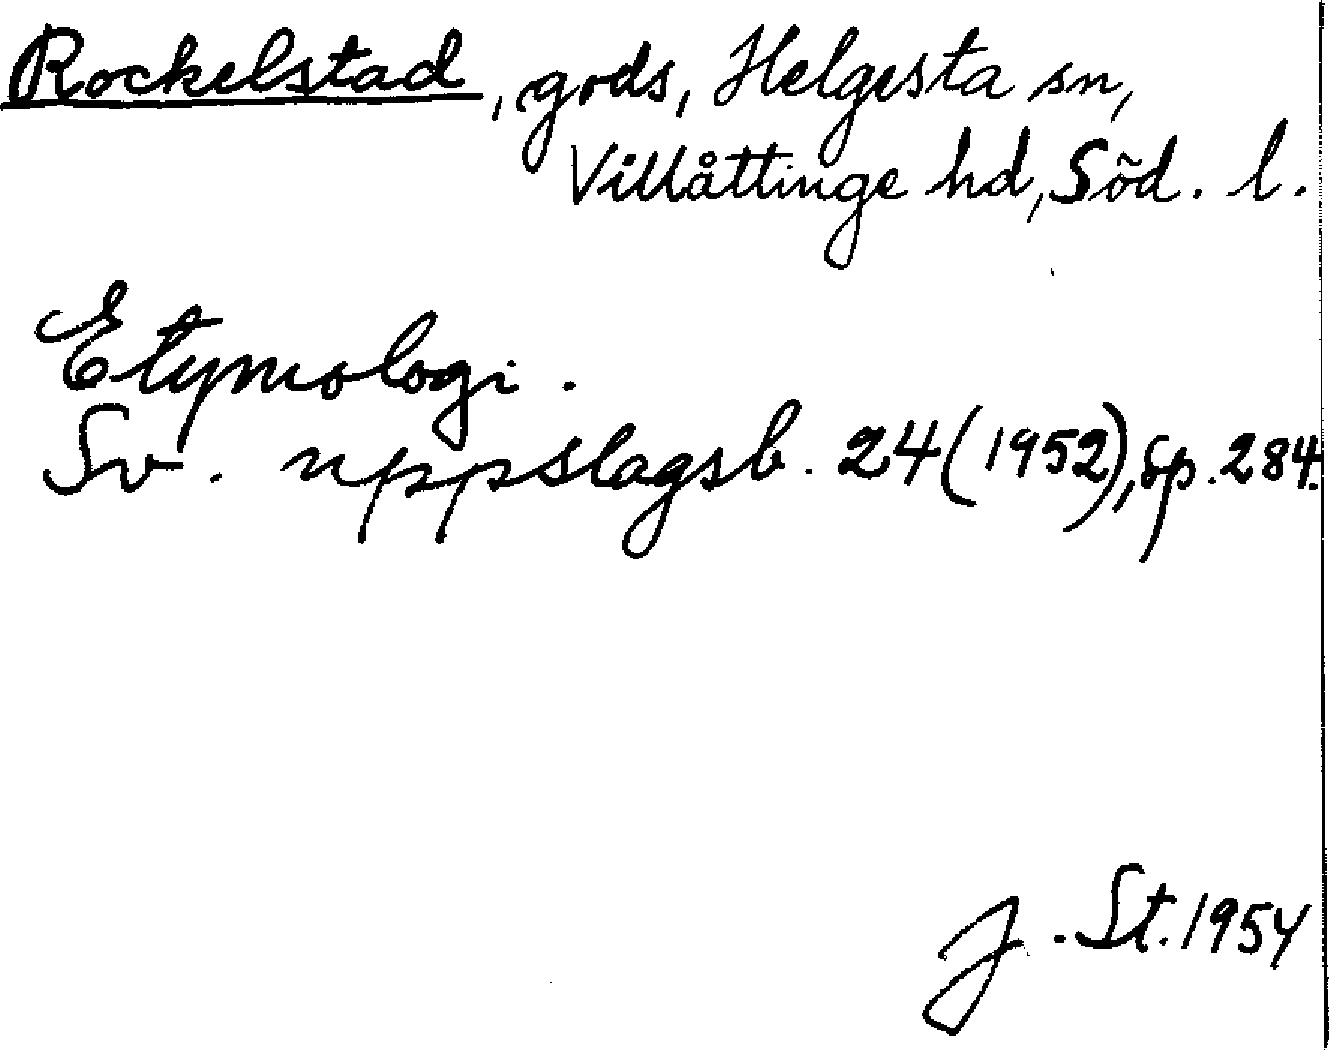 Rockelstad, gods, Helgesta sn,
Villåttinge hd, Söd. l.
Etymologi.
Sv. uppslagsb. 24 (1952), sp. 284.
J. St. 1954